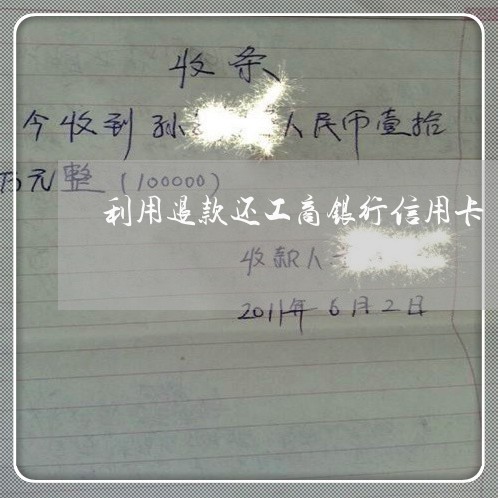 收条
今收到孙 人民币壹拾
万元整(100000)
利用退款还工商银行信用卡
收款人
2011年6月2日